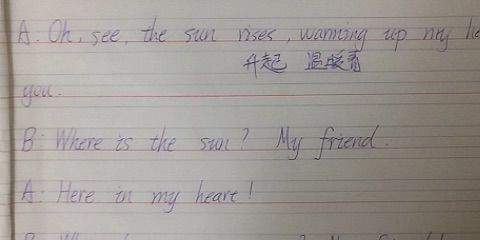 A: Oh, see, the sun rises, warming up my
升起 温暖着
you.
B: Where is the sun? My friend.
A: Here in my heart!